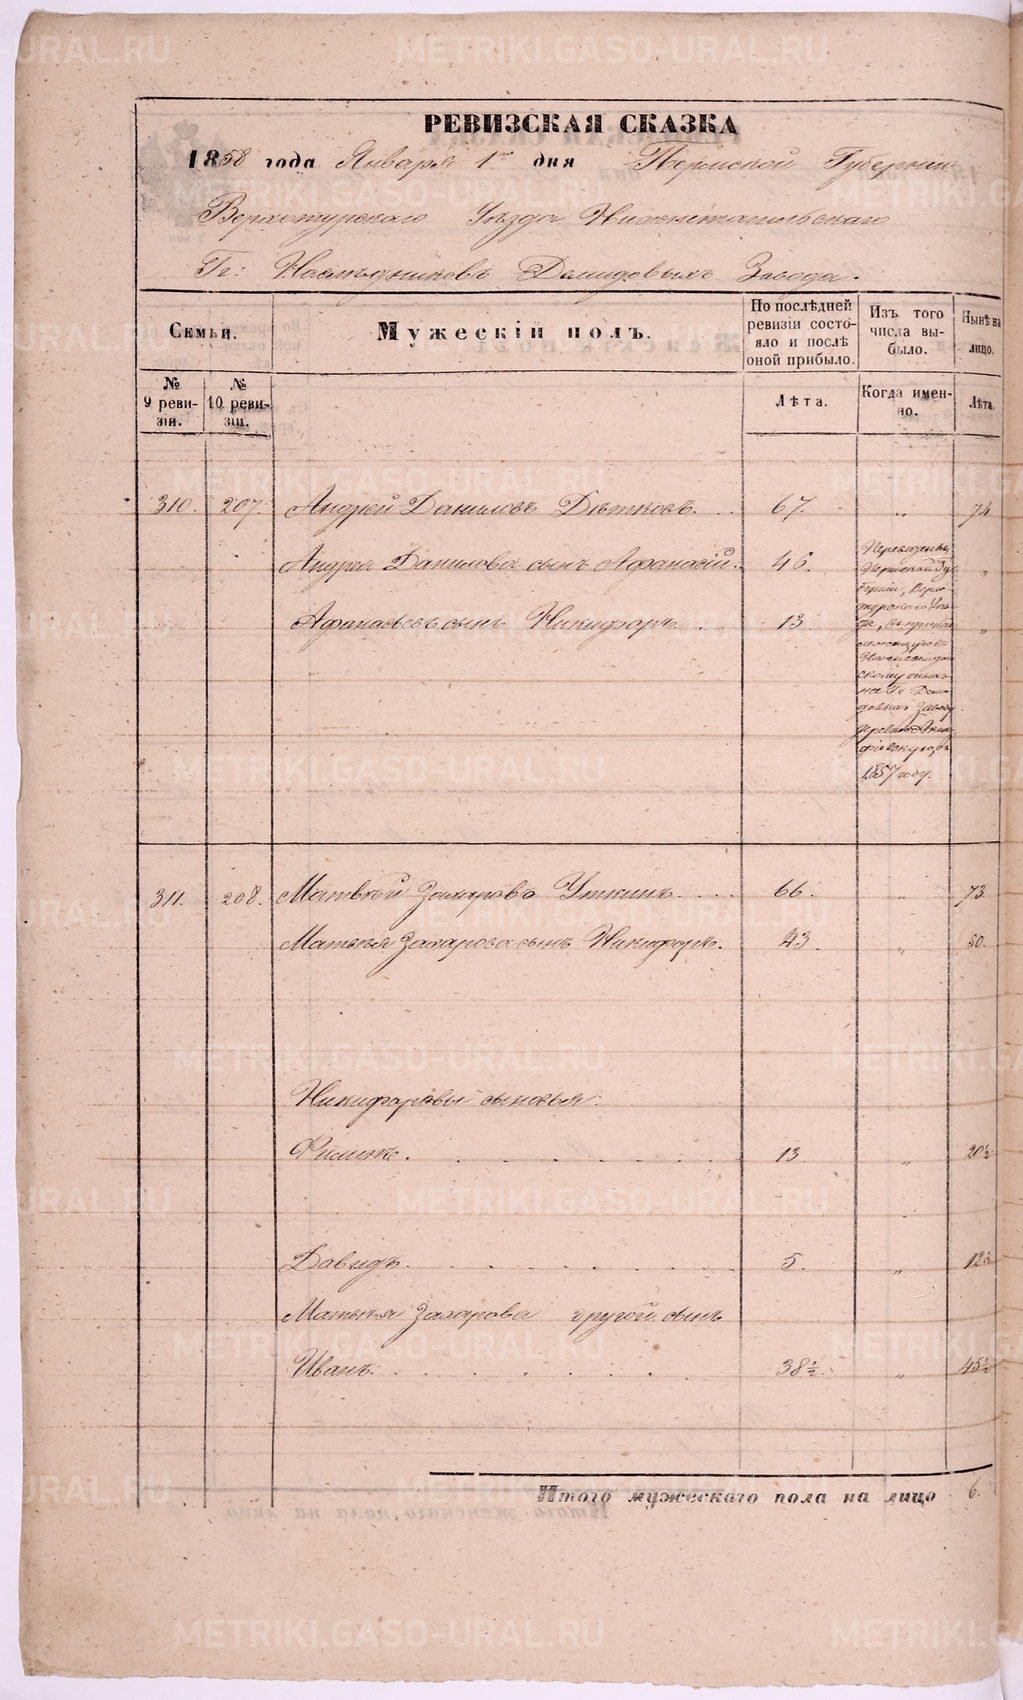 РЕВИЗСКАЯ СКАЗКА
1858 года Января 1го дня Пермской Губернии
Верхотурского Уѣзда Нижнетагильскаго
Гг: Наслѣдниковъ Демидовыхъ Завода.
Семьи.
Мужескій полъ.
По послѣдней ревизіи состояло и послѣ оной прибыло.
Изъ того числа выбыло.
Нынѣ на лицо.
№ 9 ревизіи.
№ 10 ревизіи.
Лѣта.
Когда именно.
Лѣта.
310. 207. Андрей Даниловъ Дѣтковъ. 67. „ 74
Андрея Данилова сынъ Афанасій. 46. „
Афанасьевъ сынъ Никифоръ 13. „
Пермской Гу
берніи, Верхо
турского Уѣз
да,
Завод
1857 году.
311. 208. Матвѣй Захаровъ Уткинъ 66. „ 73
Матвѣя Захарова сынъ Никифоръ. 43. „ 50.
Никифоровы сыновья:
Филипъ. 13. „ 20½
Давидъ. 5. „ 12½
Матвѣя Захарова другой сынъ
Иванъ. 38½. „ 45½
Итого мужескаго пола на лицо 6.
METRIKI.GASO-URAL.RU